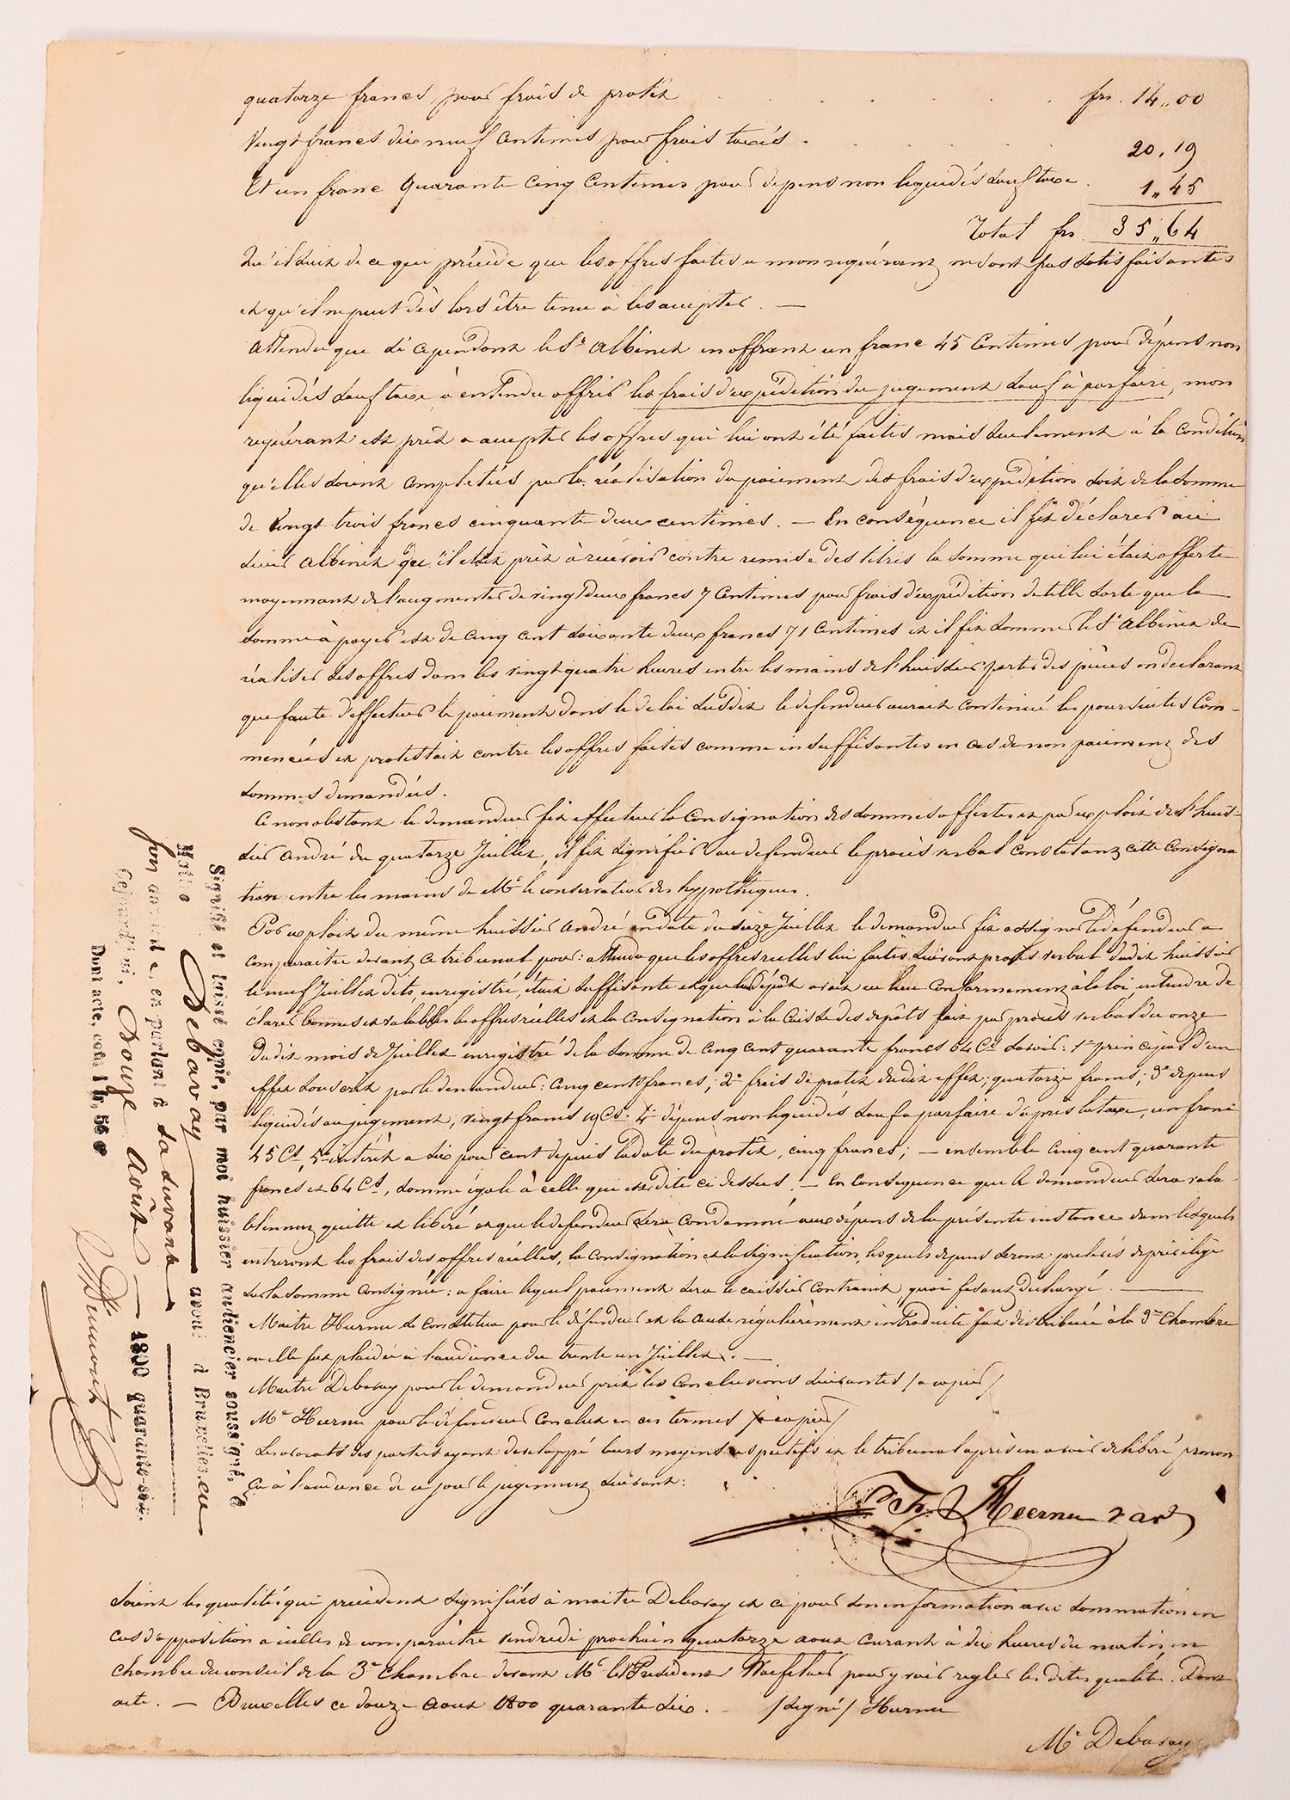 quatorze francs pour frais de protêt . . . . . . frs. 14,,00
Vingt francs dix neuf centimes pour frais taxés . . . . 20,19
Et un franc quarante cinq centimes pour dépens non liquidés sauf taxe . 1,,45
Total frs. 35,,64
Qu'il suit de ce que précède que les offres faites a mon requérant ne sont pas satisfaisantes
et qu'il ne peut dès lors être tenu à les accepter. —
Attendu que si cependant le Sr Albinet en offrant un franc 45 Centimes pour dépens non
liquidés sauf taxe à entendu offrir les frais d'expédition du jugement sauf à parfaire, mon
requérant est prêt a accepter les offres qui lui ont été faites mais seulement à la condition
qu'elles soient complétées par la réalisation du paiement des frais d'expédition soit de la somme
de Vingt trois francs cinquante deux centimes. — En conséquence il fit déclarer au
sieur Albinet que il était prêt à recevoir contre remise des titres la somme qui lui était offerte
moyennant de l'augmenter de vingt deux francs 7 Centimes pour frais d'expédition de telle sorte que la
somme à payer est de cinq cent soixante deux francs 71 Centimes et il fit sommer le Sr Albinet de
réaliser ses offres dans les vingt quatre heures entre les mains de l'huissier porteur des pièces en déclarant
que faute d'effectuer le paiement dans le délai susdit le défendeur aurait continué les poursuites com-
mencées et protestait contre les offres faites comme insuffisantes en cas de non paiement des
sommes demandées.
Ce nonobstant le demandeur fit effectuer la Consignation des sommes offertes et par exploit de l'huis-
sier André du quatorze Juillet, il fit signifier au défendeur le procès verbal constatant cette consigna
tion entre les mains de Mr le conservateur des hypothèques.
Par exploit du même huissier André en date du seize Juillet le demandeur fit assigner le défendeur a
comparaitre devant ce tribunal pour: attendu que les offres réelles lui faites suivant procès verbal dudit huissier
le neuf Juillet dito, enregistré, était suffisante et que le dépôt avait eu lieu Conformément à la loi entendre dé
clarer bonnes et valables les offres réelles et la Consignation à la Caisse des dépôts fait par procès verbal du onze
dudit mois de Juillet enregistré de la somme de Cinq cent quarante francs 64 Cs savoir: 1° principal d'un
effet souscrit par le demandeur: cinq cents francs; 2° frais de protêt dudit effet; quatorze francs; 3° dépens
liquidés au jugement, vingt francs 19 Cs. 4° dépens non liquidés sauf a parfaire d'après la taxe, un franc
45 Cs, 5° intérêt a six pour cent depuis la date du protêt, cinq francs; — ensemble Cinq cent quarante
francs et 64 Cs, somme égale à celle qui est dite ci dessus. — En Conséquence que le demandeur sera vala-
blement quitte et libéré et que le défendeur sera Condamné aux dépens de la présente instance dans lesquels
entreront les frais des offres réelles, la consignation et la signification, lesquels dépens seront prélevés de privilège
sur la somme consignée: a faire lequel paiement sera le caissier Contraint quoi faisant déchargé. —
Maître Heernu se Constitua pour le défendeur et la Cause régulièrement introduite fut distribuée à la 3me Chambre
ou elle fut plaidée à l'audience du trente un Juillet. —
Maitre Debavay pour le demandeur prit les Conclusions suivantes /a copier/
Me Heernu pour le défendeur Conclut en ces termes /a copier/
Les avocats des parties ayant développé leurs moyens respectifs et le tribunal après en avoir délibéré pronon
ça à l'audience de ce jour le jugement suivant:
Heernu
Soient les qualités qui précèdent signifiées à maitre Debavay et ce pour son information avec sommation en
cas d'opposition a icelles de comparaitre vendredi prochain quatorze aout courant à dix heures du matin en
chambre du conseil de la 3e Chambre devant Mr le Président Waefelaer pour y voir regler les dites qualités. Dont
acte. — Bruxelles ce douze aout 1800 quarante six. /signé/ Heernu
Me Debavay
Signifié et laissé copie, par moi huissier audiencier soussigné, à
Maître Debavay avoué à Bruxelles, en
son domicile, en parlant à sa servante
Cejourd'hui, Douze Août 1800 quarante-six.
Dont acte, coût 1 fr, 55 c